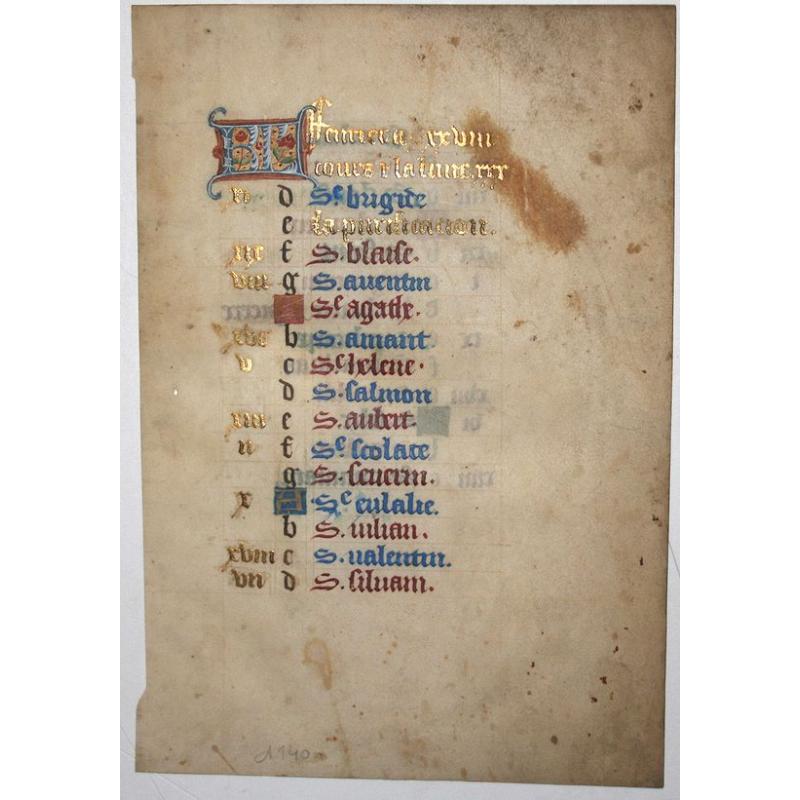 KL feurier a xxviii
iours & la lune. xxx
d Sᵉ brigide
e La purification.
iii f S. blaise.
viii g S. auentin
Sᵉ agathe.
xvi b S. amant
v c Sᵉ helene.
d S. salmon
xiii e S. aubert.
ii f Sᵉ scolace
g S. seuerin.
x A Sᵉ eulalie.
b S. iulian.
xviii c S. ualentin.
vii d S. siluain.
1140